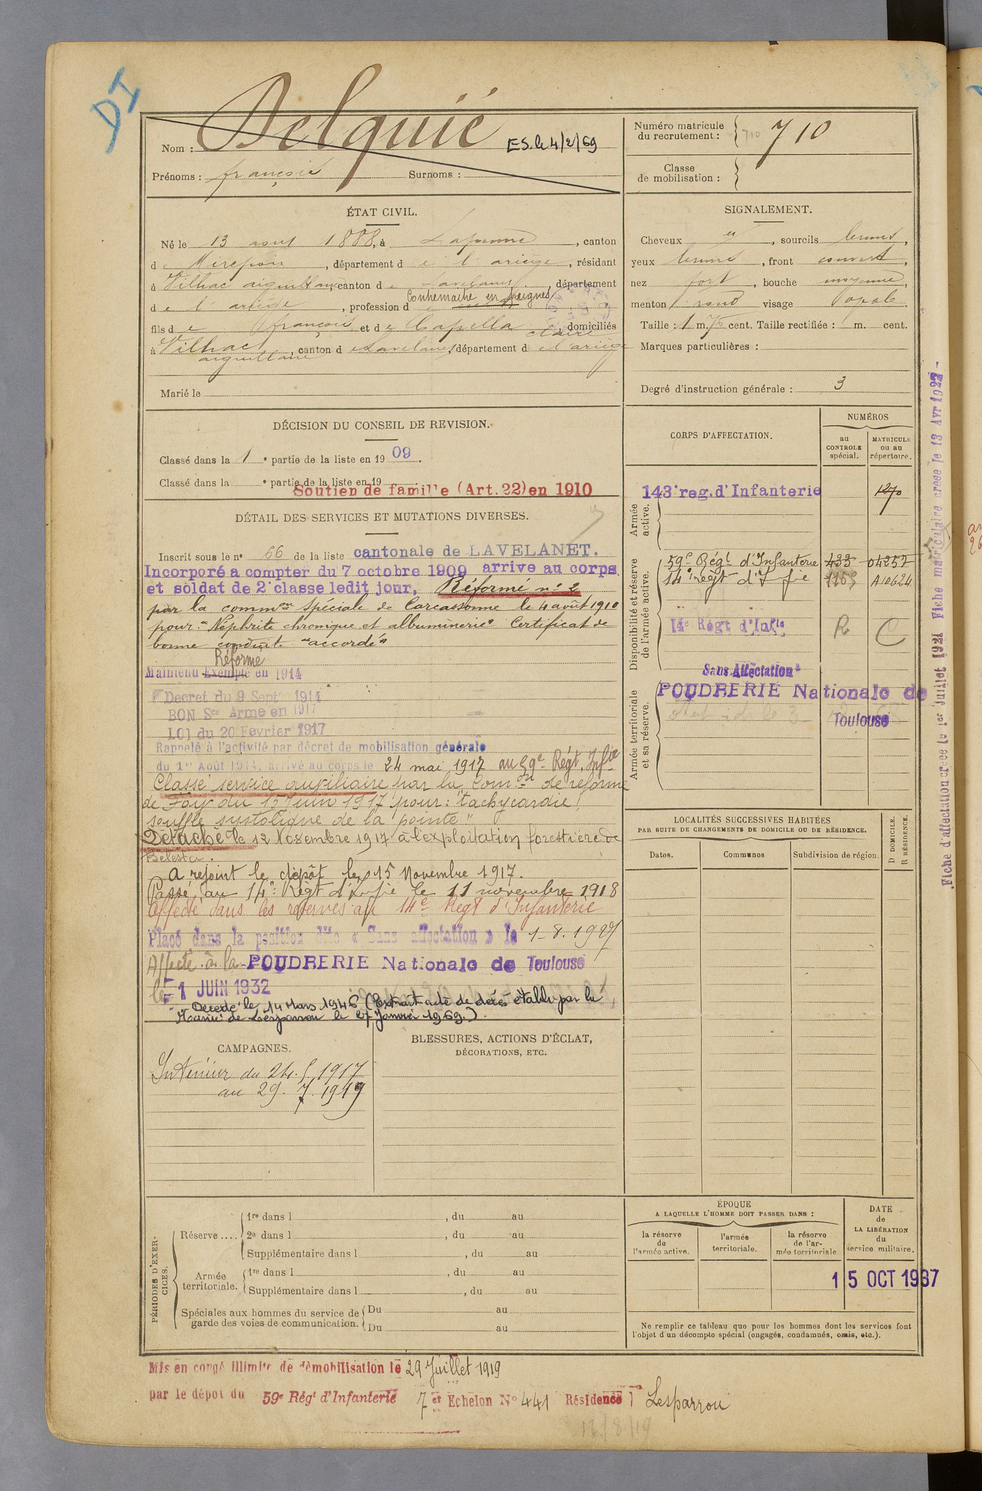 DI
Nom : Delquié
ES. le 4/2/69
Prénoms : françois Surnoms :
Numéro matricule du recrutement : 710
Classe de mobilisation :
ÉTAT CIVIL.
Né le 13 1888, à Laperne, canton
de Mirepoix, département de l'ariège, résidant
à Vilhac aiguillanes canton de Lavelanet, département
de l'ariège, profession de en peignes
fils de françois et de Capella claire, domiciliés
à Vilhac, canton de Lavelanet, département de l'ariège
aiguillanes
Marié le
SIGNALEMENT.
Cheveux , sourcils bruns,
yeux bruns, front couvert,
nez fort, bouche moyenne,
menton rond visage ovale
Taille : 1 m. cent. Taille rectifiée : m. cent.
Marques particulières :
Degré d'instruction générale : 3
DÉCISION DU CONSEIL DE REVISION.
Classé dans la 1e partie de la liste en 1909.
Classé dans la e partie de la liste en 19
Soutien de famille (Art. 22) en 1910
DÉTAIL DES SERVICES ET MUTATIONS DIVERSES.
Inscrit sous le n° 66 de la liste cantonale de LAVELANET.
Incorporé a compter du 7 octobre 1909 arrive au corps
et soldat de 2e classe ledit jour, Réformé n° 2
par la common spéciale de Carcassonne le 4 août 1910
pour "Néphrite chronique et albuminerie" Certificat de
bonne conduite "accordé"
Réforme
Maintenu Exempté en 1914
Decret du 9 Sept 1914
BON Sce Armé en 1917
LOI du 20 Février 1917
Rappelé à l'activité par décret de mobilisation générale
du 1er Août 1914, arrivé au corps le 24 mai 1917 au 59e Régt. Infie
Classé service auxiliaire par la comon de réforme
de Foix du 15 Juin 1917 pour : tachycardie,
souffle systolique de la pointe
Détaché le 12 Novembre 1917 à l'exploitation forestière de
Belesta.
A rejoint le dépôt le 15 Novembre 1917.
Passé au 14e Régt d'Infie le 11 novembre 1918
Affecté dans les réserves au 14e Régt d'Infanterie
Placé dans la position dite « Sans affectation » le 1-8.1927
Affecté à la POUDRERIE Nationale de Toulouse
le 1 JUIN 1932
Décédé le 14 Mars 1946 (Extrait acte de décès établi par la
Mairie de Lesparrou le 27 Janvier 1969.)
CORPS D'AFFECTATION.
NUMÉROS
au CONTROLE spécial.
MATRICULE ou au répertoire.
Armée active.
143e reg. d'Infanterie 1270
Disponibilité et réserve de l'armée active.
59e Régt d'Infanterie 433 04257
14e régt d'Ifie 1163 A10624
14e Régt d'Infie R C
Armée territoriale et sa réserve.
Sans Affectation
POUDRERIE Nationale de
Toulouse
LOCALITÉS SUCCESSIVES HABITÉES
PAR SUITE DE CHANGEMENTS DE DOMICILE OU DE RÉSIDENCE.
Dates. Communes Subdivision de région.
D DOMICILE. R RÉSIDENCE.
Fiche d'affectation créée le 1er Juillet 1921 Fiche matriculaire créée le 13 Avr 1922
CAMPAGNES.
Intérieur du 24.5.1917
au 29.7.1919
BLESSURES, ACTIONS D'ÉCLAT,
DÉCORATIONS, ETC.
PÉRIODES D'EXERCICES.
Réserve ....
1re dans l , du au
2e dans l , du au
Supplémentaire dans l , du au
Armée territoriale.
1re dans l , du au
Supplémentaire dans l , du au
Spéciales aux hommes du service de garde des voies de communication.
Du au
Du au
ÉPOQUE
A LAQUELLE L'HOMME DOIT PASSER DANS :
la réserve de l'armée active.
l'armée territoriale.
la réserve de l'armée territoriale.
DATE de LA LIBÉRATION du service militaire.
15 OCT 1937
Ne remplir ce tableau que pour les hommes dont les services font
l'objet d'un décompte spécial (engagés, condamnés, omis, etc.).
Mis en congé illimité de démobilisation le 29 Juillet 1919
par le dépôt du 59e Régt d'Infanterie 7e Echelon N° 441 Résidence Lesparrou